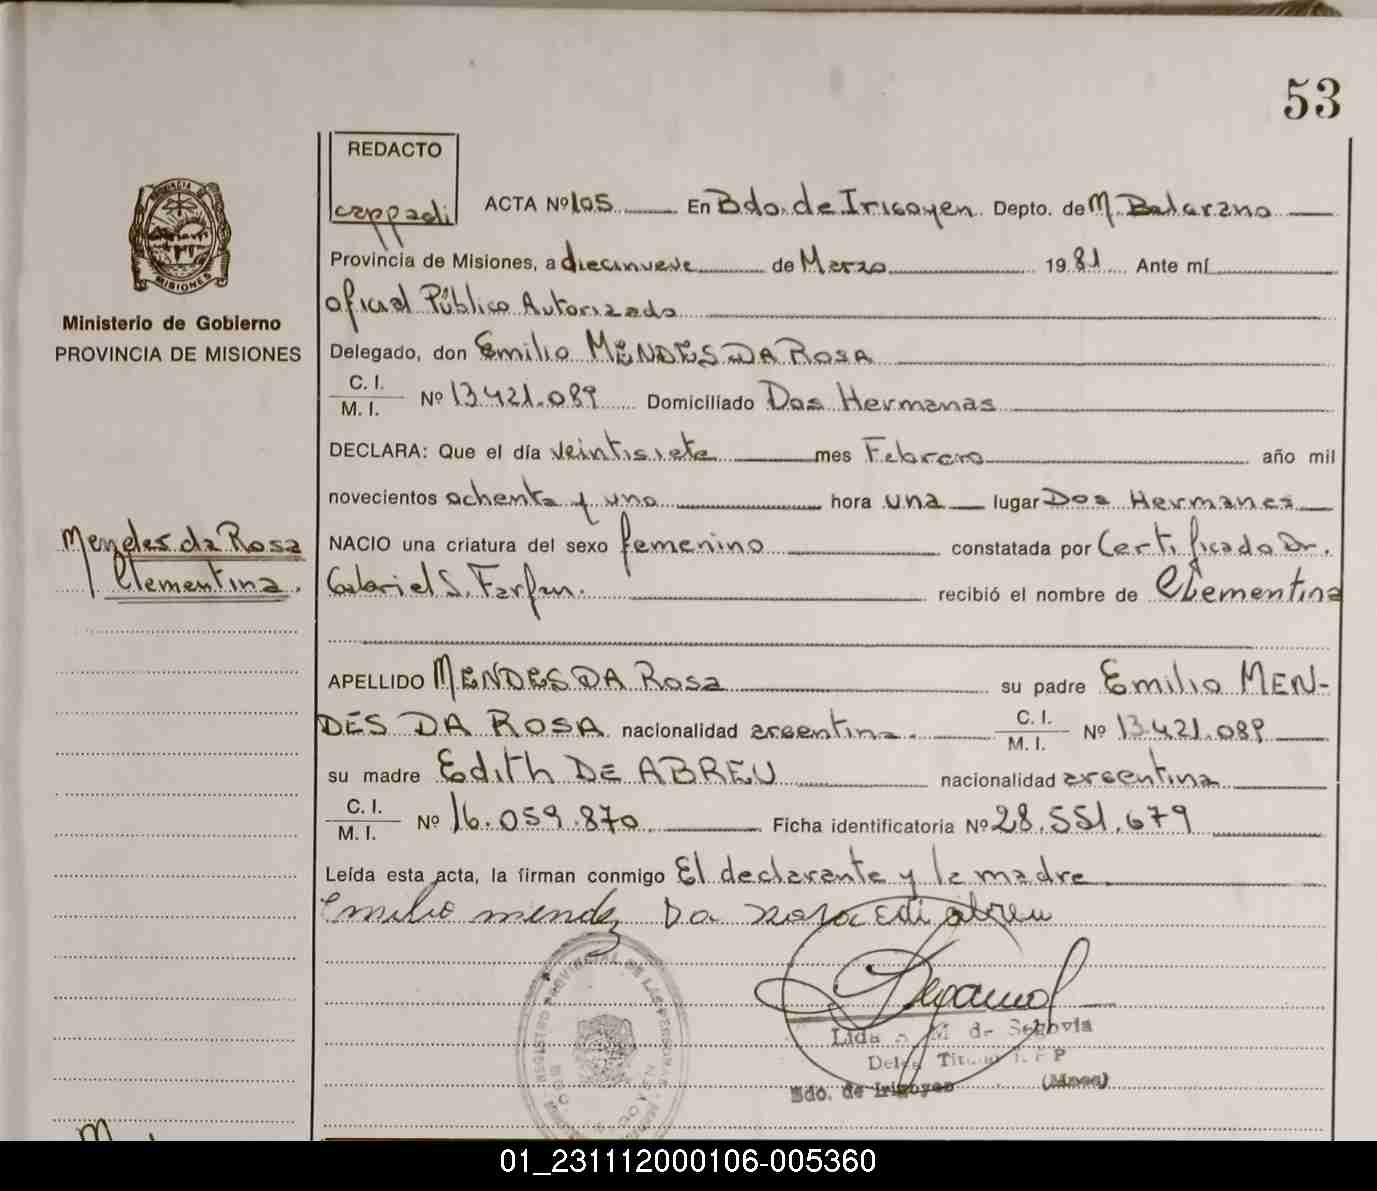 53
REDACTO
ACTA Nº 105 En Bdo. de Irigoyen Depto. de M. Belgrano
Provincia de Misiones, a diecinueve de Marzo 1981 Ante mí
oficial Público Autorizado
Ministerio de Gobierno
PROVINCIA DE MISIONES
Delegado, don Emilio MENDES DA ROSA
C. I.
M. I. Nº 13.421.089 Domiciliado Dos Hermanas
DECLARA: Que el día veintisiete mes Febrero año mil
novecientos ochenta y uno hora una lugar Dos Hermanas
Mendes da Rosa
Clementina.
NACIO una criatura del sexo femenino constatada por Certificado Dr.
Gabriel S. Farfan. recibió el nombre de Clementina
APELLIDO MENDES DA Rosa su padre Emilio MEN-
DES DA ROSA nacionalidad argentina. C. I.
M. I. Nº 13.421.089
su madre Edith DE ABREU nacionalidad argentina
C. I.
M. I. Nº 16.059.870 Ficha identificatoria Nº 28.551.679
Leída esta acta, la firman conmigo El declarante y la madre
Emilio mendez Da rosa Edi abreu
Lida M de Segovia
Bdo. de Irigoyen (Mnes)
01_231112000106-005360